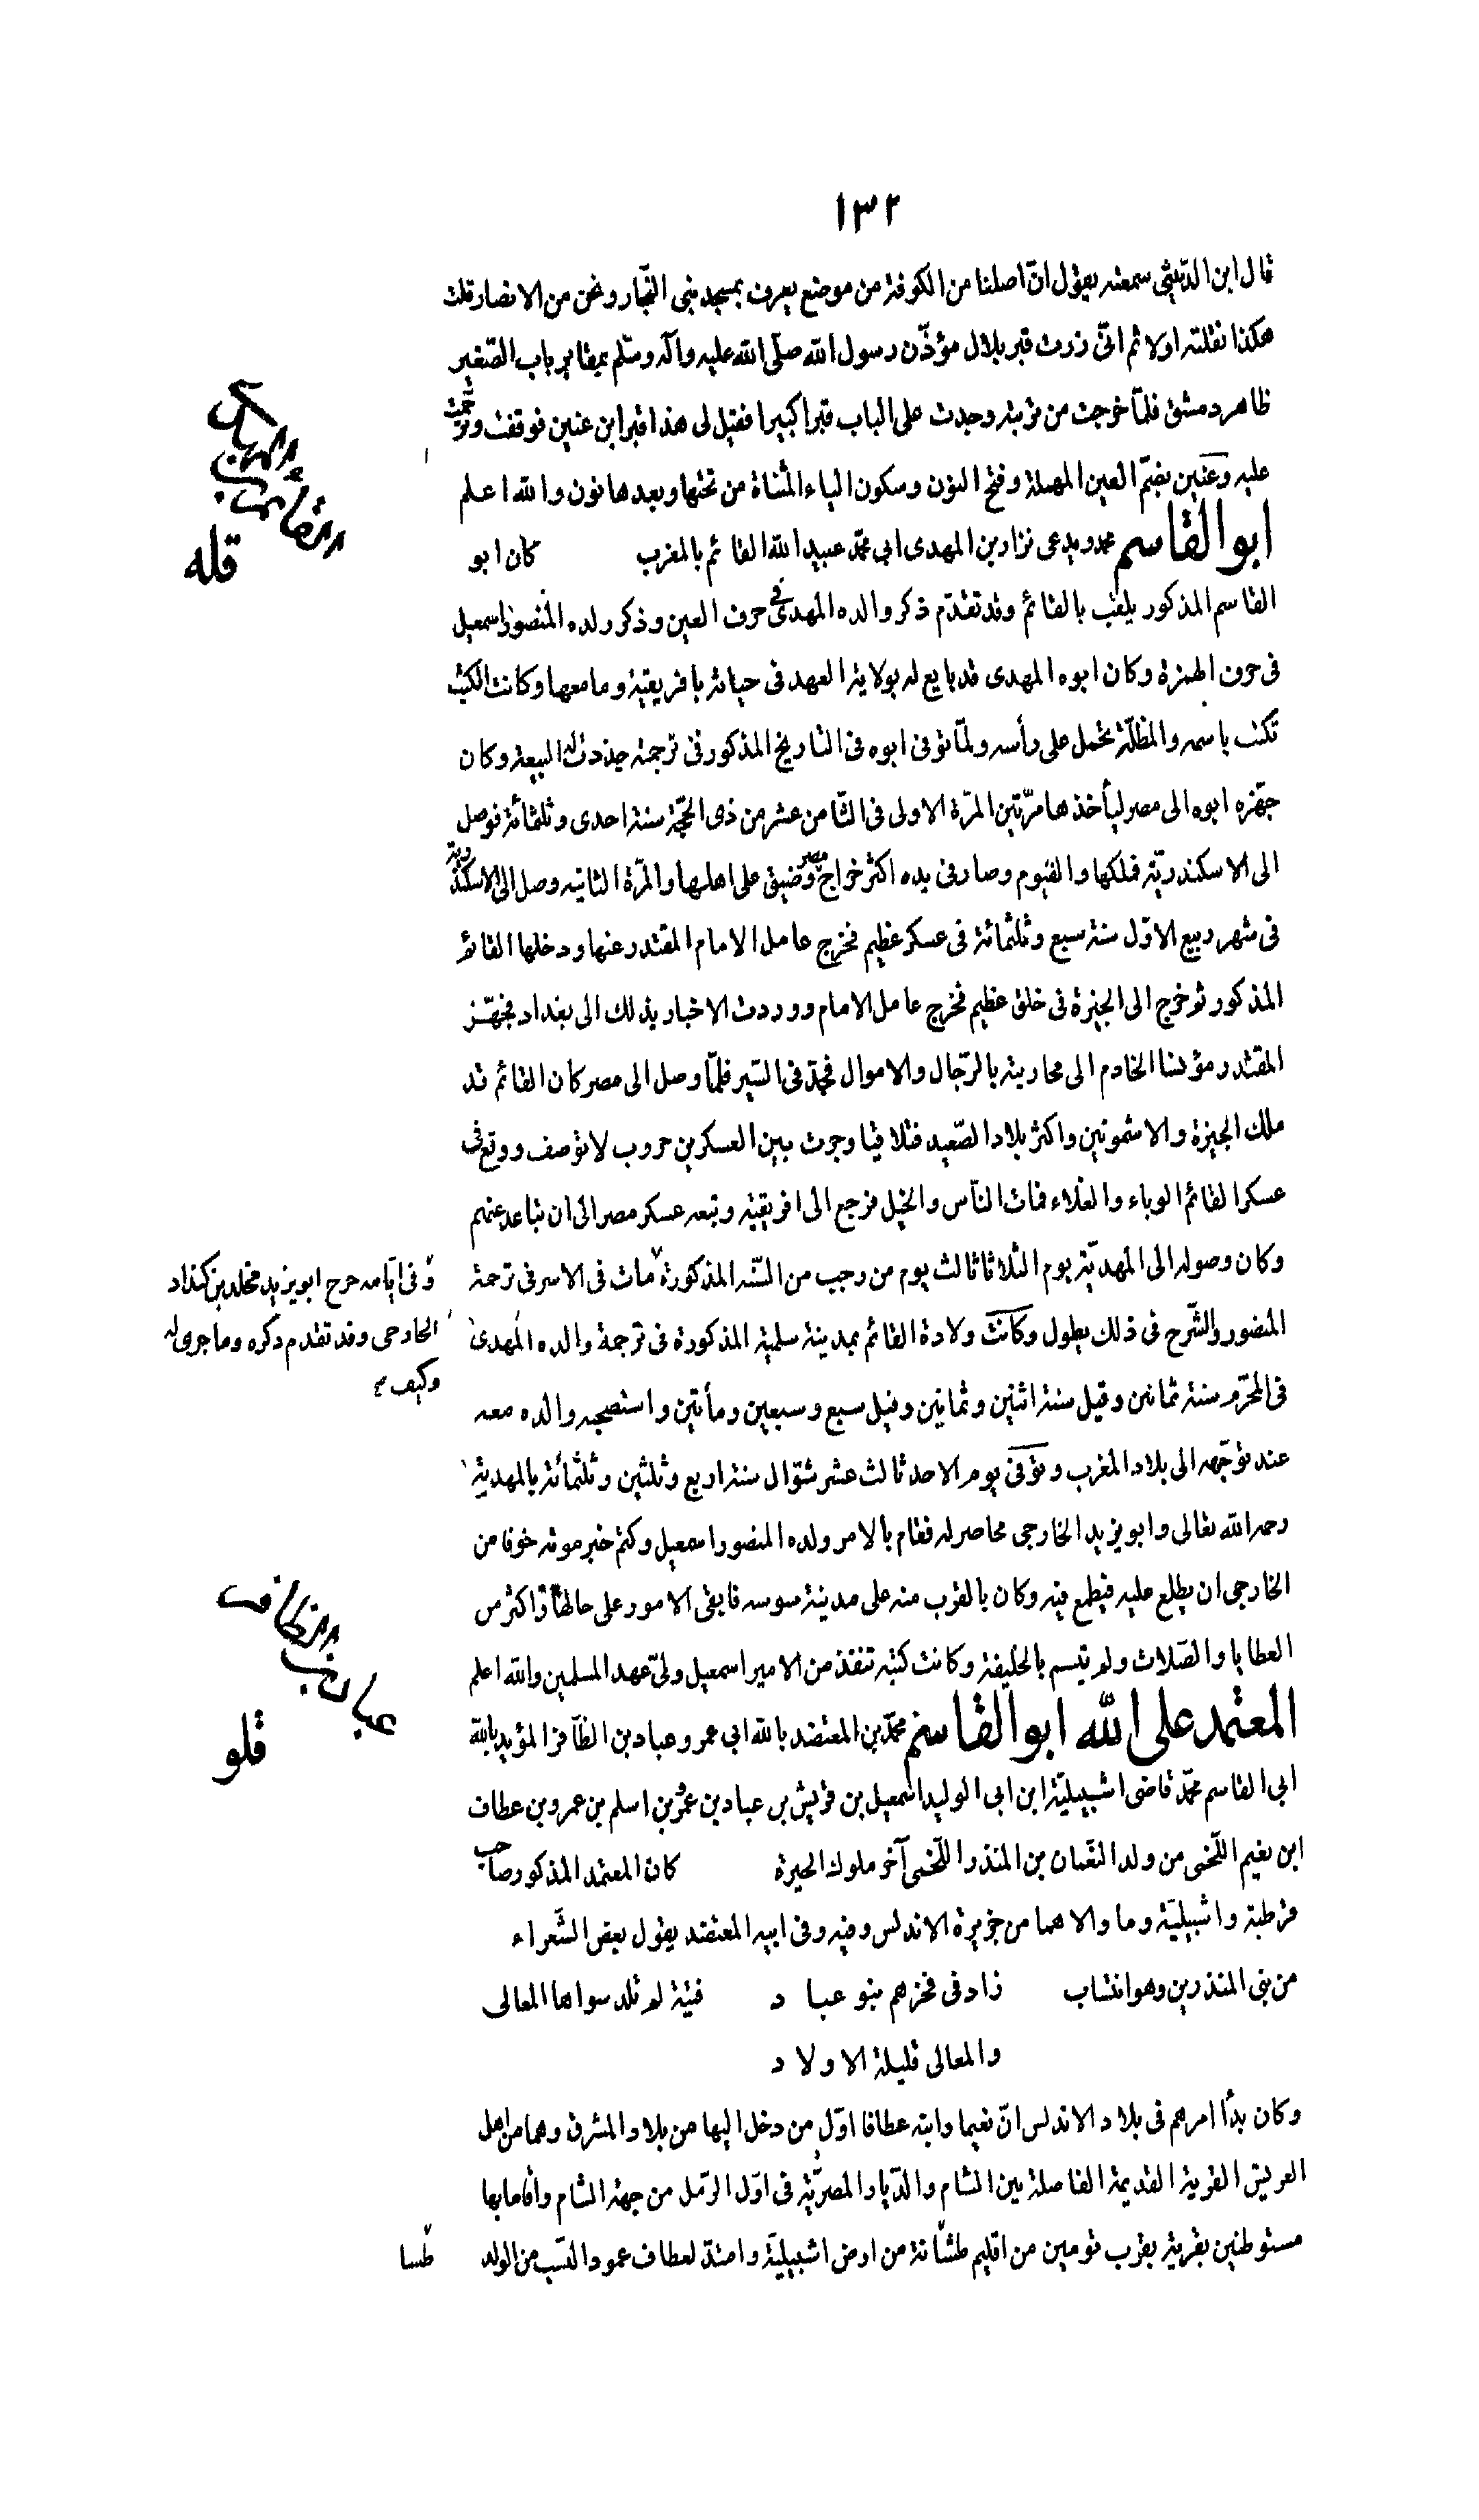 ١٣٢
قال ابن الدبيثى سمعته يقول انّ اصلنا من الكوفة من موضع يعرف بمسجد بنى النجّار ونحن من الانصار قلت
هكذا نقلته اولا ثم انّى زرت قبر بلال مؤذّن رسول الله صلّى الله عليه وآله وسلّم بمقابر باب الصّغير
ظاهر دمشق فلمّا خرجت من تربته وجدت على الباب قبرا كبيرا فقيل لى هذا قبر ابن عنين فوقفت وترحّمت
عليه وعنين بضمّ العين المهملة وفتح النون وسكون الياء المثناة من تحتها وبعدها نون والله اعلم
ابو القاسم محمد ويدعى نزار بن المهدى ابى محمّد عبيد الله القائم بالمغرب كان ابو
القاسم المذكور يلقب بالقائم وقد تقدّم ذكر والده المهدى فى حرف العين وذكر ولده المنصور اسمعيل
فى حرف الهمزة وكان ابوه المهدى قد بايع له بولاية العهد فى حياته بافريقيّة وما معها وكانت الكتب
تكتب باسمه والمظلّة تحمل على رأسه ولمّا توفى ابوه فى التاريخ المذكور فى ترجمته جددت له البيعة وكان
جهّزه ابوه الى مصر ليأخذها مرّتين المرّة الاولى فى الثّامن عشر من ذى الحجّة سنة احدى وثلثمائة فوصل
الى الاسكندريّة فملكها والفيوم وصار فى يده اكثر خراج مصر وضيق على اهلها والمرّة الثانيه وصل الى الاسكندرية
فى شهر ربيع الاوّل سنة سبع وثلثمائة فى عسكر عظيم فخرج عامل الامام المقتدر عنها ودخلها القائم
المذكور ثم خرج الى الجيزة فى خلق عظيم فخرج عامل الامام ووردت الاخبار بذلك الى بغداد فجهّز
المقتدر مؤنسا الخادم الى محاربته بالرّجال والاموال فجدّ فى السّير فلمّا وصل الى مصر كان القائم قد
ملك الجيزة والاشمونين واكثر بلاد الصّعيد فتلاقيا وجرت بين العسكرين حروب لا توصف ووقع فى
عسكر القائم الوباء والغلاء فمات النّاس والخيل فرجع الى افريقيّه وتبعه عسكر مصر الى ان تباعد عنهم
وكان وصوله الى المهديّة يوم الثلاثا ثالث يوم من رجب من السّنه المذكورة مات فى الاسر فى ترجمة
وفى ايّامه خرج ابو يزيد مخلد بن كنداد
الخارجى وقد تقدم ذكره وما جرى له
وكيف
المنصور والشّرح فى ذلك يطول وكانت ولادة القائم بمدينة سلمية المذكورة فى ترجمة والده المهدى
فى المحرّم سنة ثمانين وقيل سنة اثنين وثمانين وقيل سبع وسبعين ومأتين واستصحبه والده معه
عند توجّهه الى بلاد المغرب وتوفى يوم الاحد ثالث عشر شوّال سنة اربع وثلثين وثلثمائة بالمهديّة
رحمه الله تعالى وابو يزيد الخارجى محاصر له فقام بالامر ولده المنصور اسمعيل وكتم خبر موته خوفا من
الخارجى ان يطلع عليه فيطمع فيه وكان بالقرب منه على مدينة سوسه فابقى الامور على حالها واكثر من
العطايا والصّلات ولم يتسم بالخليفة وكانت كتبه تنفذ من الامير اسمعيل ولىّ عهد المسلمين والله اعلم
المعتمد على الله ابو القاسم محمّد بن المعتضد بالله ابى عمرو عباد بن الظّافر المؤيد بالله
ابى القاسم محمّد قاضى اشبيليّة ابن ابى الوليد اسمعيل بن قريش بن عباد بن عمرو بن اسلم بن عمرو بن عطاف
ابن نعيم اللّخمى من ولد النعّمان بن المنذر اللّخمى آخر ملوك الحيرة كان المعتمد المذكور صاحب
قرطبة واشبيليّة وما والاهما من جزيرة الاندلس وفيه وفى ابيه المعتضد يقول بعض الشّعراء
من بنى المنذرين وهو انتساب زاد فى فخرهم بنو عباد فتية لم تلد سواها المعالى
والمعالى قليلة الاولاد
وكان بدأ امرهم فى بلاد الاندلس انّ نعيما وابنه عطافا اوّل من دخل اليها من بلاد المشرق وهما من اهل
العريش القرية القديمة الفاصلة بين الشام والدّيار المصريّة فى اوّل الرّمل من جهة الشام واقاما بها
مستوطنين بقرية بقرب تومين من اقليم طشّانة من ارض اشبيليّة وامتدّ لعطاف عمود النّسب من الولد
قله
قلو